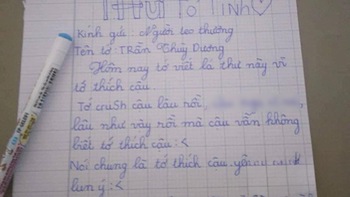 Thư Tỏ Tình
Kính gửi : Người teo thương
Tên tớ : TRần Thuỳ Dương
Hôm nay tớ viết lá thư này vì
tớ thích cậu.
Tớ crush cậu lâu rồi,
lâu như vậy rồi mà cậu vẫn không
biết tớ thích cậu :<
Nói chung là tớ thích cậu, yêu
lun ý :<